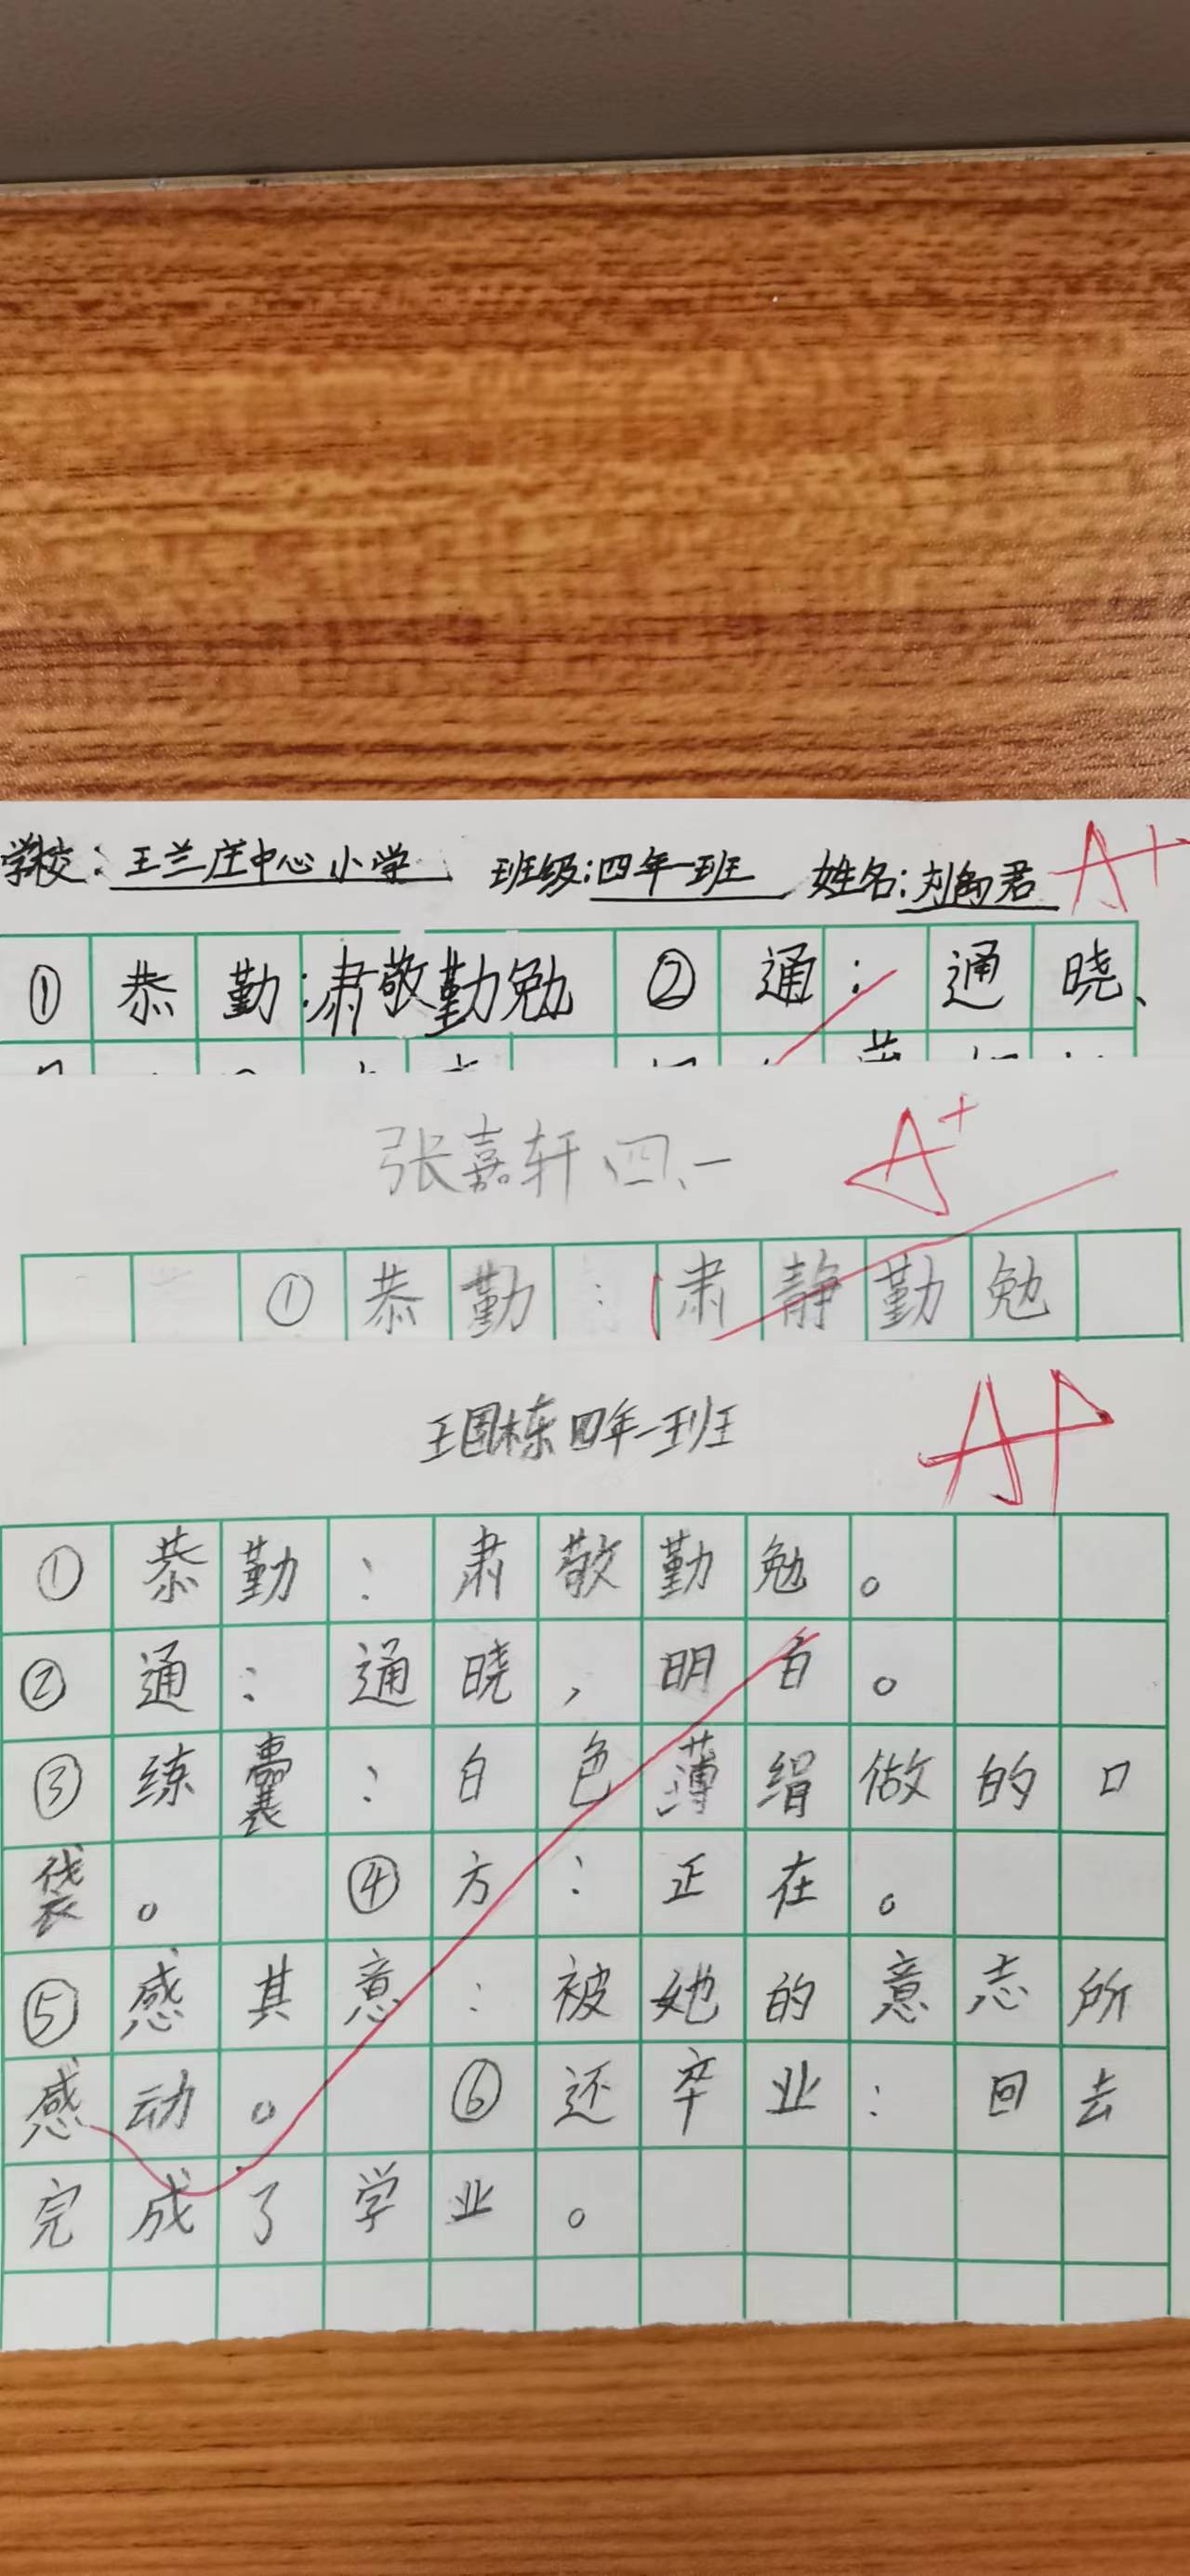 学校：王兰庄中心小学 班级：四年一班 姓名：刘禹君 A+
①恭勤：肃敬勤勉 ②通：通晓、
张嘉轩 四、一 A+
①恭勤：肃静勤勉
王国栋 四年一班 A+
①恭勤：肃敬勤勉。
②通：通晓，明白。
③练囊：白色薄绢做的口
袋。 ④方：正在。
⑤感其意：被她的意志所
感动。 ⑥还卒业：回去
完成了学业。